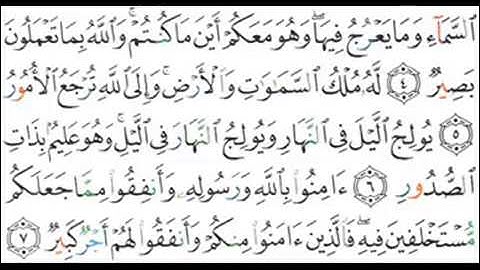 ٱلسَّمَآءِ وَمَا يَعۡرُجُ فِيهَاۖ وَهُوَ مَعَكُمۡ أَيۡنَ مَا كُنتُمۡۚ وَٱللَّهُ بِمَا تَعۡمَلُونَ
بَصِيرٞ ٤ لَّهُۥ مُلۡكُ ٱلسَّمَٰوَٰتِ وَٱلۡأَرۡضِۚ وَإِلَى ٱللَّهِ تُرۡجَعُ ٱلۡأُمُورُ
٥ يُولِجُ ٱلَّيۡلَ فِي ٱلنَّهَارِ وَيُولِجُ ٱلنَّهَارَ فِي ٱلَّيۡلِۚ وَهُوَ عَلِيمُۢ بِذَاتِ
ٱلصُّدُورِ ٦ ءَامِنُواْ بِٱللَّهِ وَرَسُولِهِۦ وَأَنفِقُواْ مِمَّا جَعَلَكُم
مُّسۡتَخۡلَفِينَ فِيهِۖ فَٱلَّذِينَ ءَامَنُواْ مِنكُمۡ وَأَنفَقُواْ لَهُمۡ أَجۡرٞ كَبِيرٞ ٧